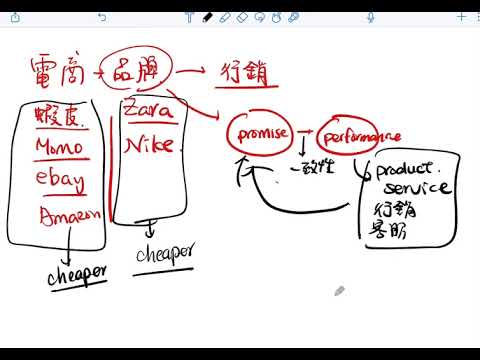 電商 → 品牌 → 行銷
蝦皮
Momo
ebay
Amazon
cheaper
Zara
Nike
cheaper
promise → performance
一致性
product.
service
行銷
客服